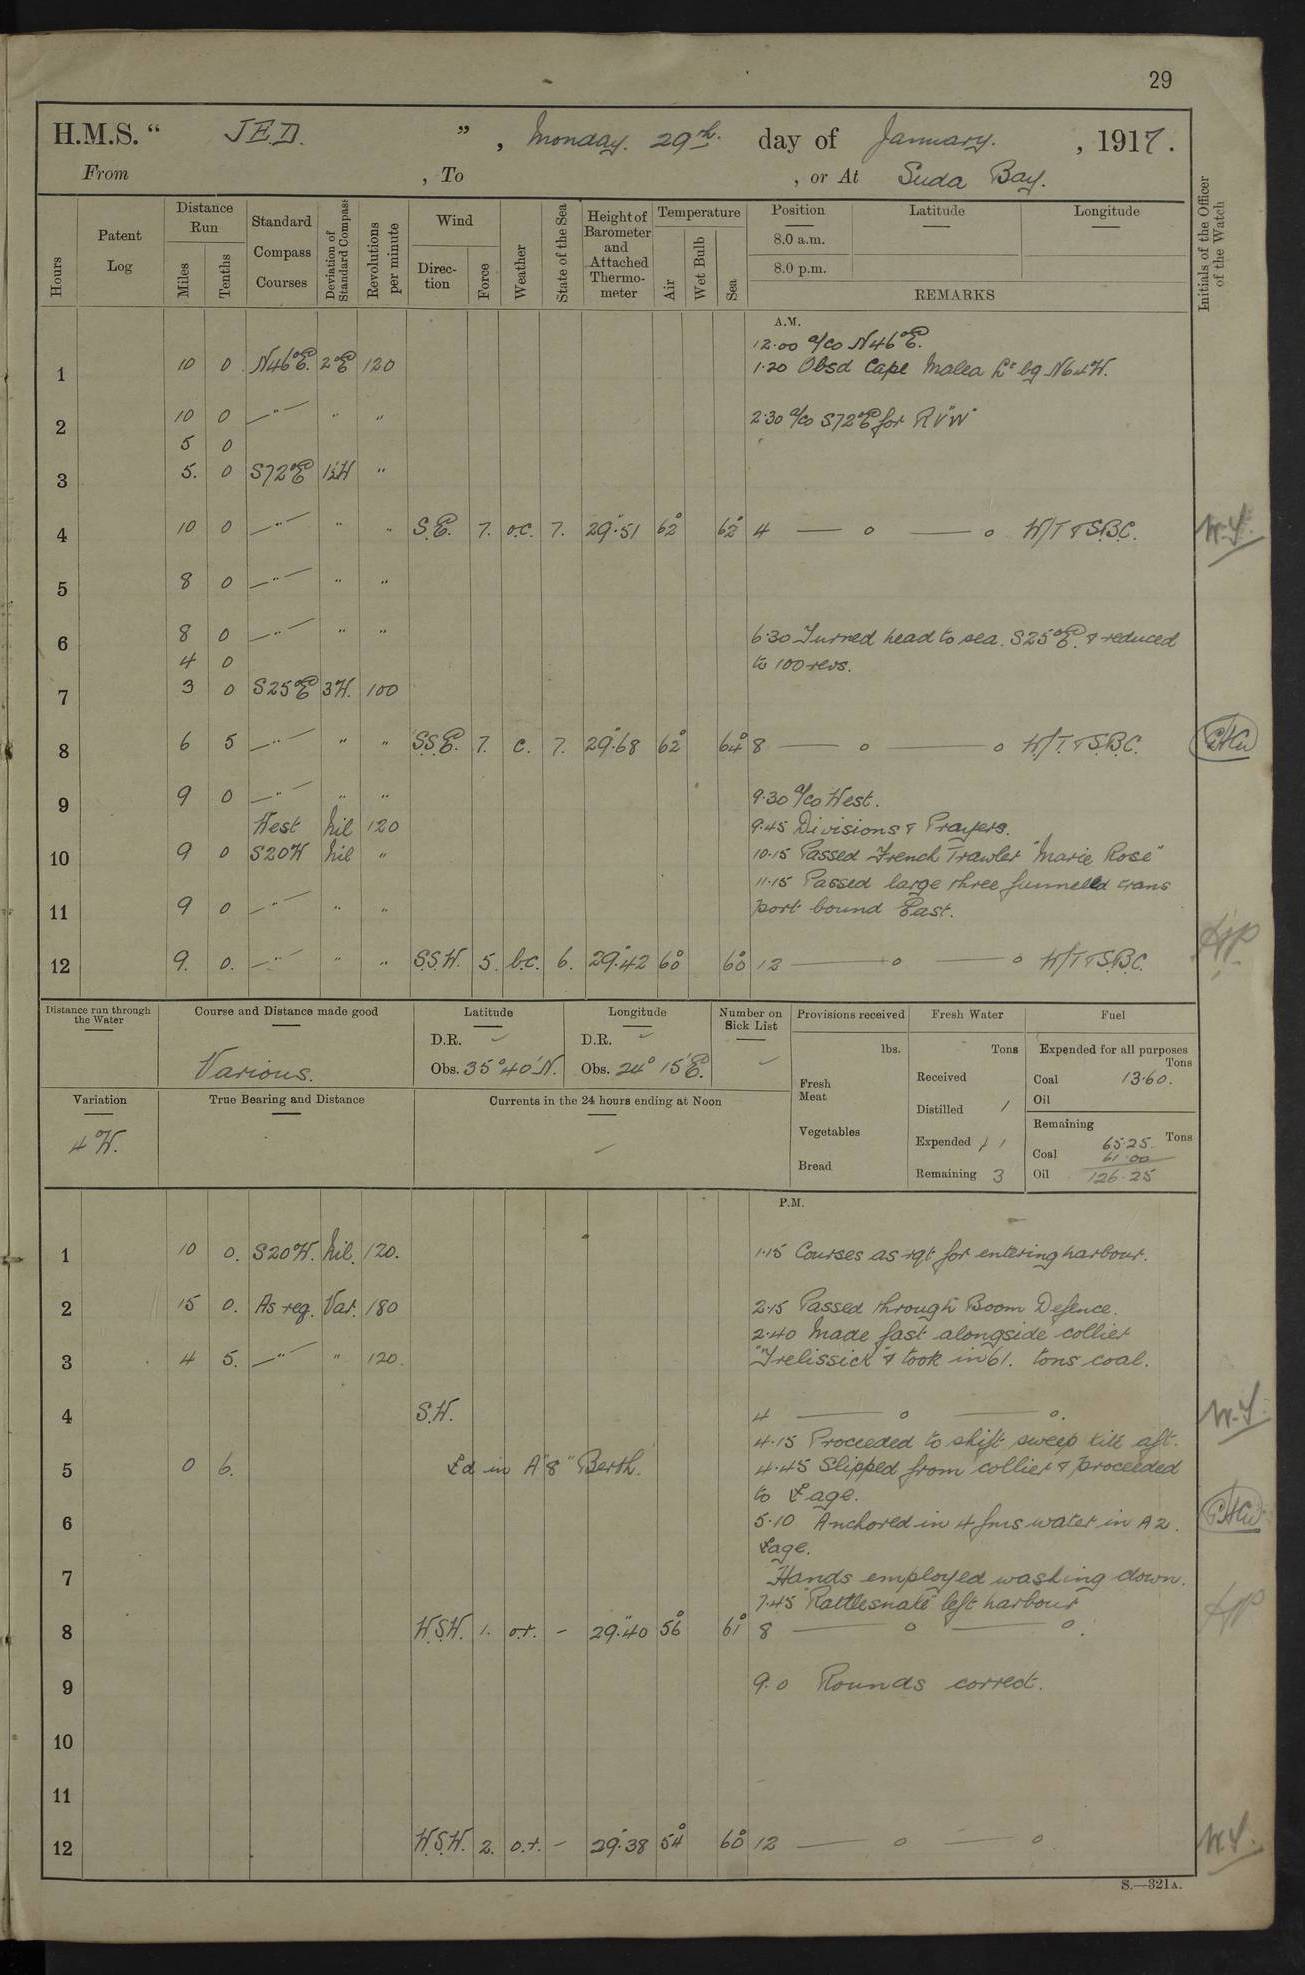 29
H.M.S. “ JED. ” , Monday. 29th. day of January. , 1917.
From , To , or At Suda Bay.
Hours
Patent Log
Distance Run
Miles
Tenths
Standard Compass Courses
Deviation of Standard Compass
Revolutions per minute
Wind
Direc-tion
Force
Weather
State of the Sea
Height of Barometer and Attached Thermo-meter
Temperature
Air
Wet Bulb
Sea
Position
8.0 a.m.
8.0 p.m.
Latitude
Longitude
REMARKS
Initials of the Officer of the Watch
A.M.
12.00 a/co N46°E.
1 10 0 N46°E. 2°E 120 1.20 Obsd Cape Malea Lt bg N64W.
2 10 0 —"— " " 2.30 a/co S72°E for RV "W"
5 0
3 5. 0 S72°E 1½W "
4 10 0 —"— " " S.E. 7. o.c. 7. 29.51 62° 62° 4 — o — o W/T & S.B.C. W.S.
5 8 0 —"— " "
6 8 0 —"— " " 6.30 Turned head to sea. S25°E. & reduced
4 0 to 100 revs.
7 3 0 S25°E 3W. 100
8 6 5 —"— " " S.S.E. 7. c. 7. 29.68 62° 64° 8 — o — o W/T. & S.B.C.
9 9 0 —"— " " 9.30 a/co West.
West Nil 120 9.45 Divisions & Prayers.
10 9 0 S20W Nil " 10.15 Passed French Trawler "Marie Rose"
11.15 Passed large three funnelled trans
11 9 0 —"— " " port bound East.
12 9. 0. —"— " " S.S.W. 5. b.c. 6. 29.42 60° 60° 12 — o — o W/T & S.B.C.
Distance run through the Water
Course and Distance made good
Various.
Latitude
D.R. —
Obs. 35°40'N.
Longitude
D.R. —
Obs. 24° 15'E.
Number on Sick List
—
Provisions received
lbs.
Fresh Meat
Vegetables
Bread
Fresh Water
Tons
Received
Distilled /
Expended 1
Remaining 3
Fuel
Expended for all purposes
Tons
Coal 13.60.
Oil
Remaining
Tons
65.25
Coal 61.00
Oil 126.25
Variation
4°W.
True Bearing and Distance
Currents in the 24 hours ending at Noon
—
P.M.
1 10 0. S20W. Nil. 120. 1.15 Courses as rqt for entering harbour.
2 15 0. As req. Var. 180 2.15 Passed through Boom Defence.
2.40 Made fast alongside collier
3 4 5. —"— " 120. "Trelissick" & took in 61. tons coal.
4 S.W. 4 — o — o. W.S.
4.15 Proceeded to shift sweep kite aft.
5 0 6. in A "8" Berth. 4.45 Slipped from collier & proceeded
to age.
6 5.10 Anchored in 4 fms water in A2.
age.
7 Hands employed washing down.
7.45 "Rattlesnake" left harbour
8 W.S.W. 1. o.r. – 29.40 56° 61° 8 — o — o.
9 9.0 Rounds correct.
10
11
12 W.S.W. 2. o.r. – 29.38 54° 60° 12 — o — o W.S.
S.—321A.